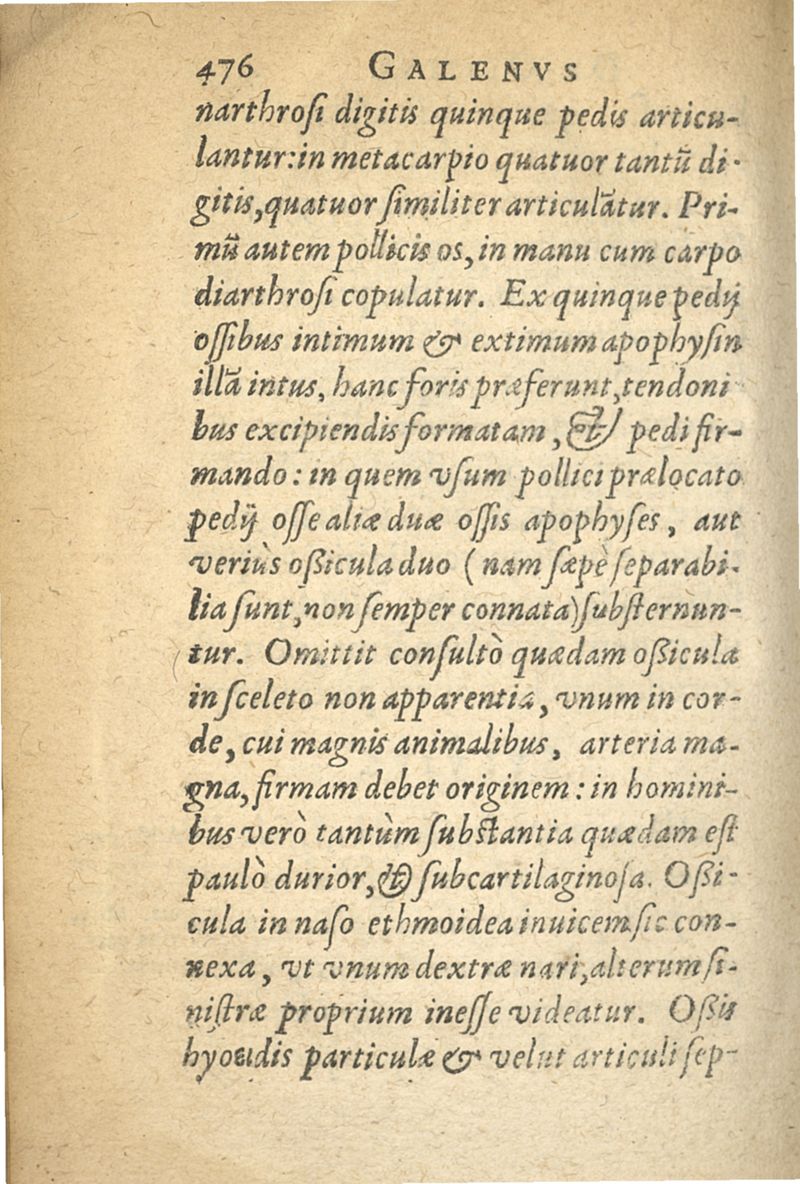 476 GALENVS
narthroſi digitis quinque pedis articu-
lantur:in metacarpio quatuor tantũ di-
gitis,quatuor ſimiliter articulãtur. Pri-
mũ autem pollicis os, in manu cum carpo
diarthroſi copulatur. Ex quinque pedij
oſſibus intimum & extimum apophyſin
illã intus, hanc foris præferunt,tendoni
bus excipiendis formatam, & pedi fir-
mando: in quem vſum pollici prælocato
pedij oſſe aliæ duæ oſſis apophyſes, aut
veriùs oßicula duo (nam ſæpè ſeparabi-
lia ſunt,non ſemper connata)ſubſternun-
tur. Omittit conſultò quædam oßicula
in ſceleto non apparentia, vnum in cor-
de, cui magnis animalibus, arteria ma-
gna, firmam debet originem: in homini-
bus verò tantùm ſubſtantia quædam eſt
paulò durior, & ſubcartilaginoſa. Oßi-
cula in naſo ethmoidea inuicem ſic con-
nexa, vt vnum dextræ nari,alterum ſi-
niſtræ proprium ineſſe videatur. Oßis
hyoeidis particulæ & velut articuli ſep-